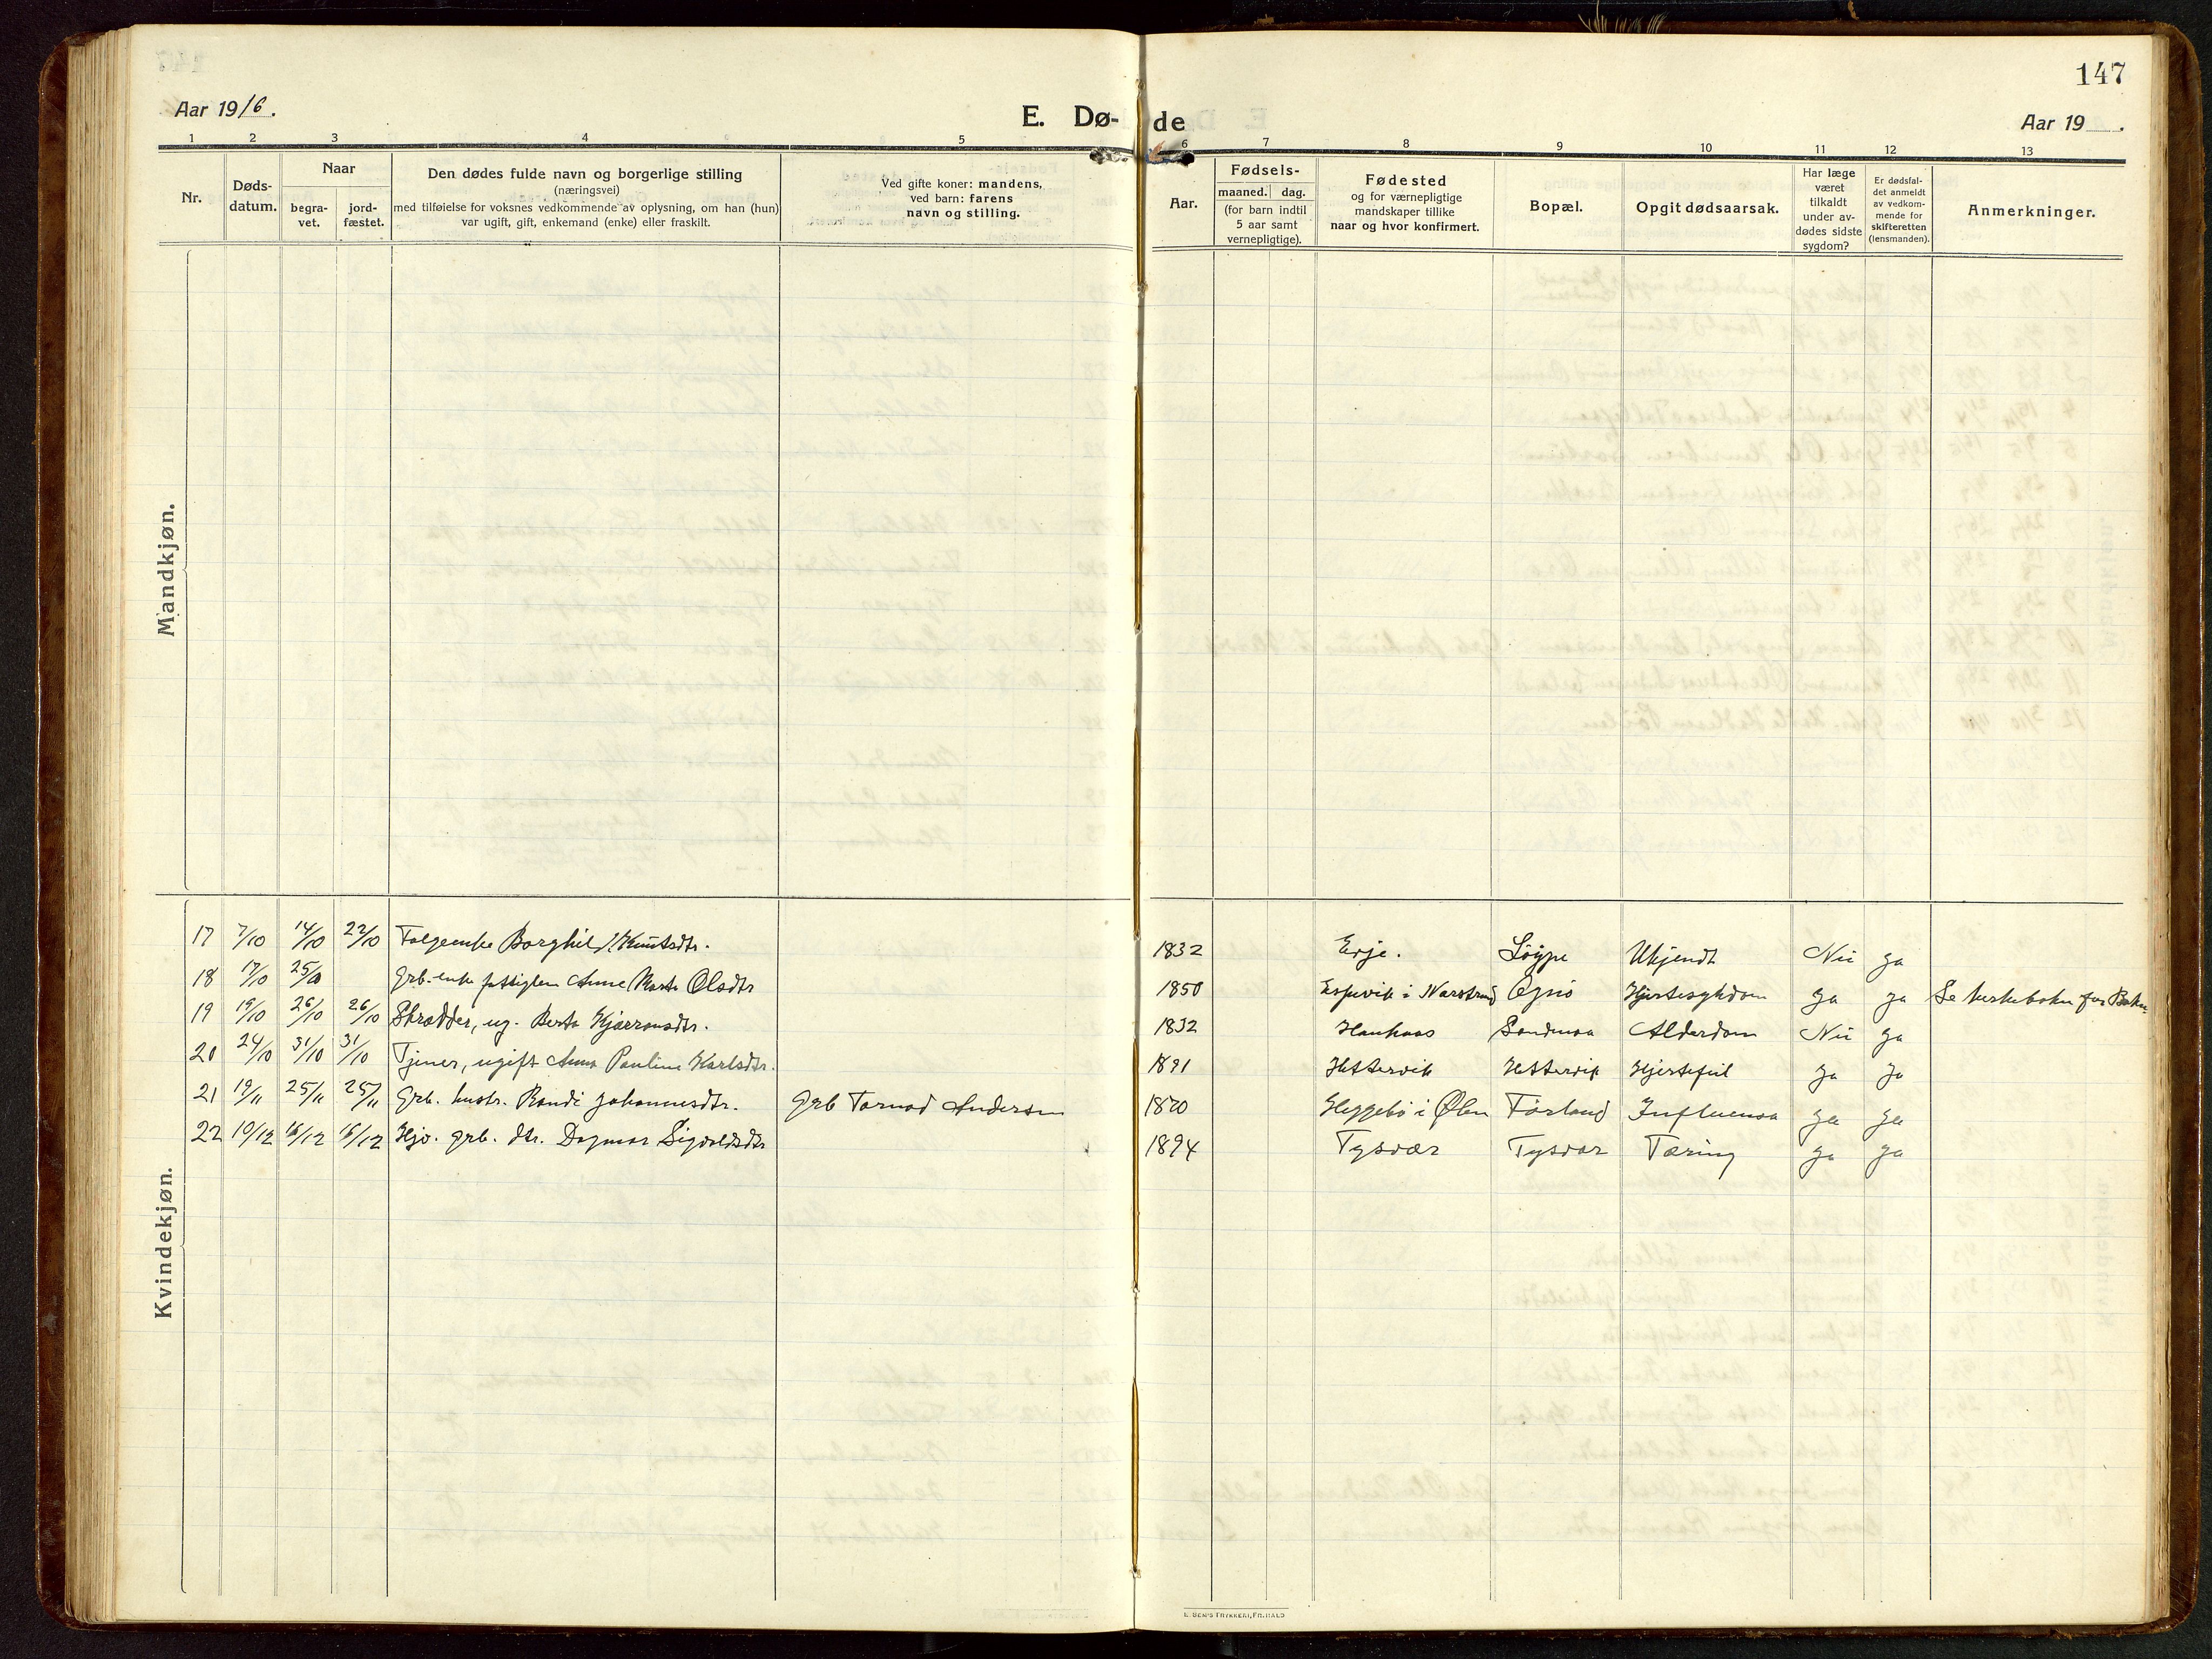 147
Aar 1916.
E. Dø- de
Aar 19 .
1 2 3 4 5 6 7 8 9 10 11 12 13
Nr.
Døds-
datum.
Naar
begra-
vet.
jord-
fæstet.
Den dødes fulde navn og borgerlige stilling
(næringsvei)
med tilføielse for voksnes vedkommende av oplysning, om han (hun)
var ugift, gift, enkemand (enke) eller fraskilt.
Ved gifte koner: mandens,
ved barn: farens
navn og stilling.
Aar.
Fødsels-
maaned. dag.
(for barn indtil
5 aar samt
vernepligtige).
Fødested
og for værnepligtige
mandskaper tillike
naar og hvor konfirmert.
Bopæl.
Opgit dødsaarsak.
Har læge
været
tilkaldt
under av-
dødes sidste
sygdom?
Er dødsfal-
det anmeldt
av vedkom-
mende for
skifteretten
(lensmanden).
Anmerkninger.
Mandkjøn.
Kvindekjøn.
17 7/10 14/10 22/10 Folgeenke Borghild Knutsdtr. 1832 Erje. Løype Ukjendt Nei ja
18 17/10 25/10 Grb. enke fattiglem Anne Marta Olsdtr 1850 Espevik i Narstrand Ognø Hjertesygdom ja ja Se kirkeboken for Bokn.
19 19/10 26/10 26/10 Skrædder, ug. Berta Kjærransdtr. 1832 Haukaas Sandmoa Alderdom Nei ja
20 24/10 31/10 31/10 Tjener, ugift Anna Pauline Karlsdtr. 1891 Hettervik Hettervik Hjertefeil ja ja
21 19/11 25/11 25/11 Grb. hustr. Randi Johannesdtr. Grb Tormod Andersen 1820 Heggebø i Ølen Førland Influensa ja ja
22 10/12 16/12 16/12 Hjv. grb. dtr. Dagmar Sigvaldsdtr 1894 Tysvær Tysvær Tæring ja ja